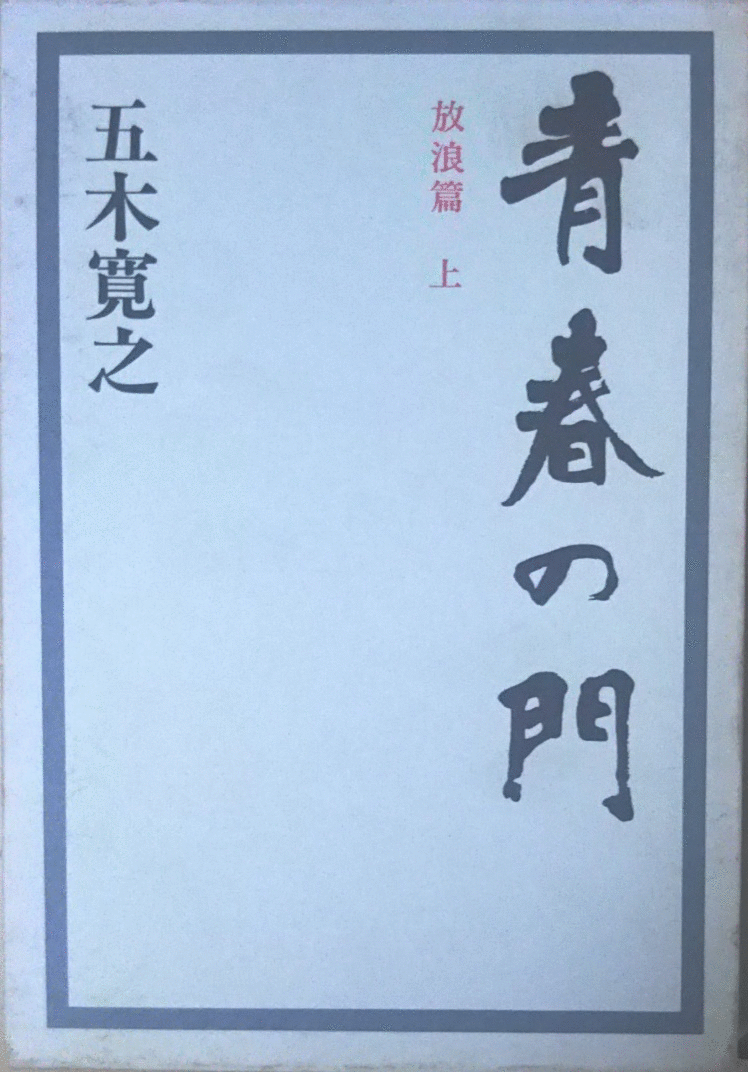 青春の門
放浪篇 上
五木寛之